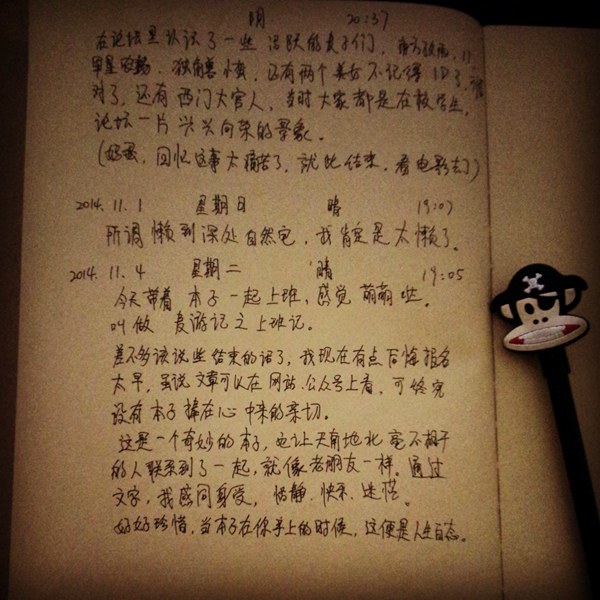 阴 20:37
在论坛里认识了一些 活跃的麦子们,
还有两个美女不记得 ID了,
对了,还有西门大官人,当时大家都是在校学生,
论坛一片兴兴向荣的景象。
(好歪,回忆这事太痛苦了,就此结束,看电影去了)
2014.11.1 星期日 晴 19:07
所谓懒到深处自然宅,我肯定是太懒了。
2014.11.4 星期二 晴 19:05
今天带着 本子一起上班,感觉萌萌哒。
叫做 麦游记之上班记。
差不多该说些结束的话了,我现在有点后悔报名
太早,虽说文章可以在网站.公众号上看,可终究
没有本子捧在心中来的亲切。
这是一个奇妙的本子,它让天南地北毫不相干
的人联系到了一起,就像老朋友一样。通过
文字,我感同身受,恬静.快乐.迷茫。
好好珍惜,当本子在你手上的时候,这便是人生百态。